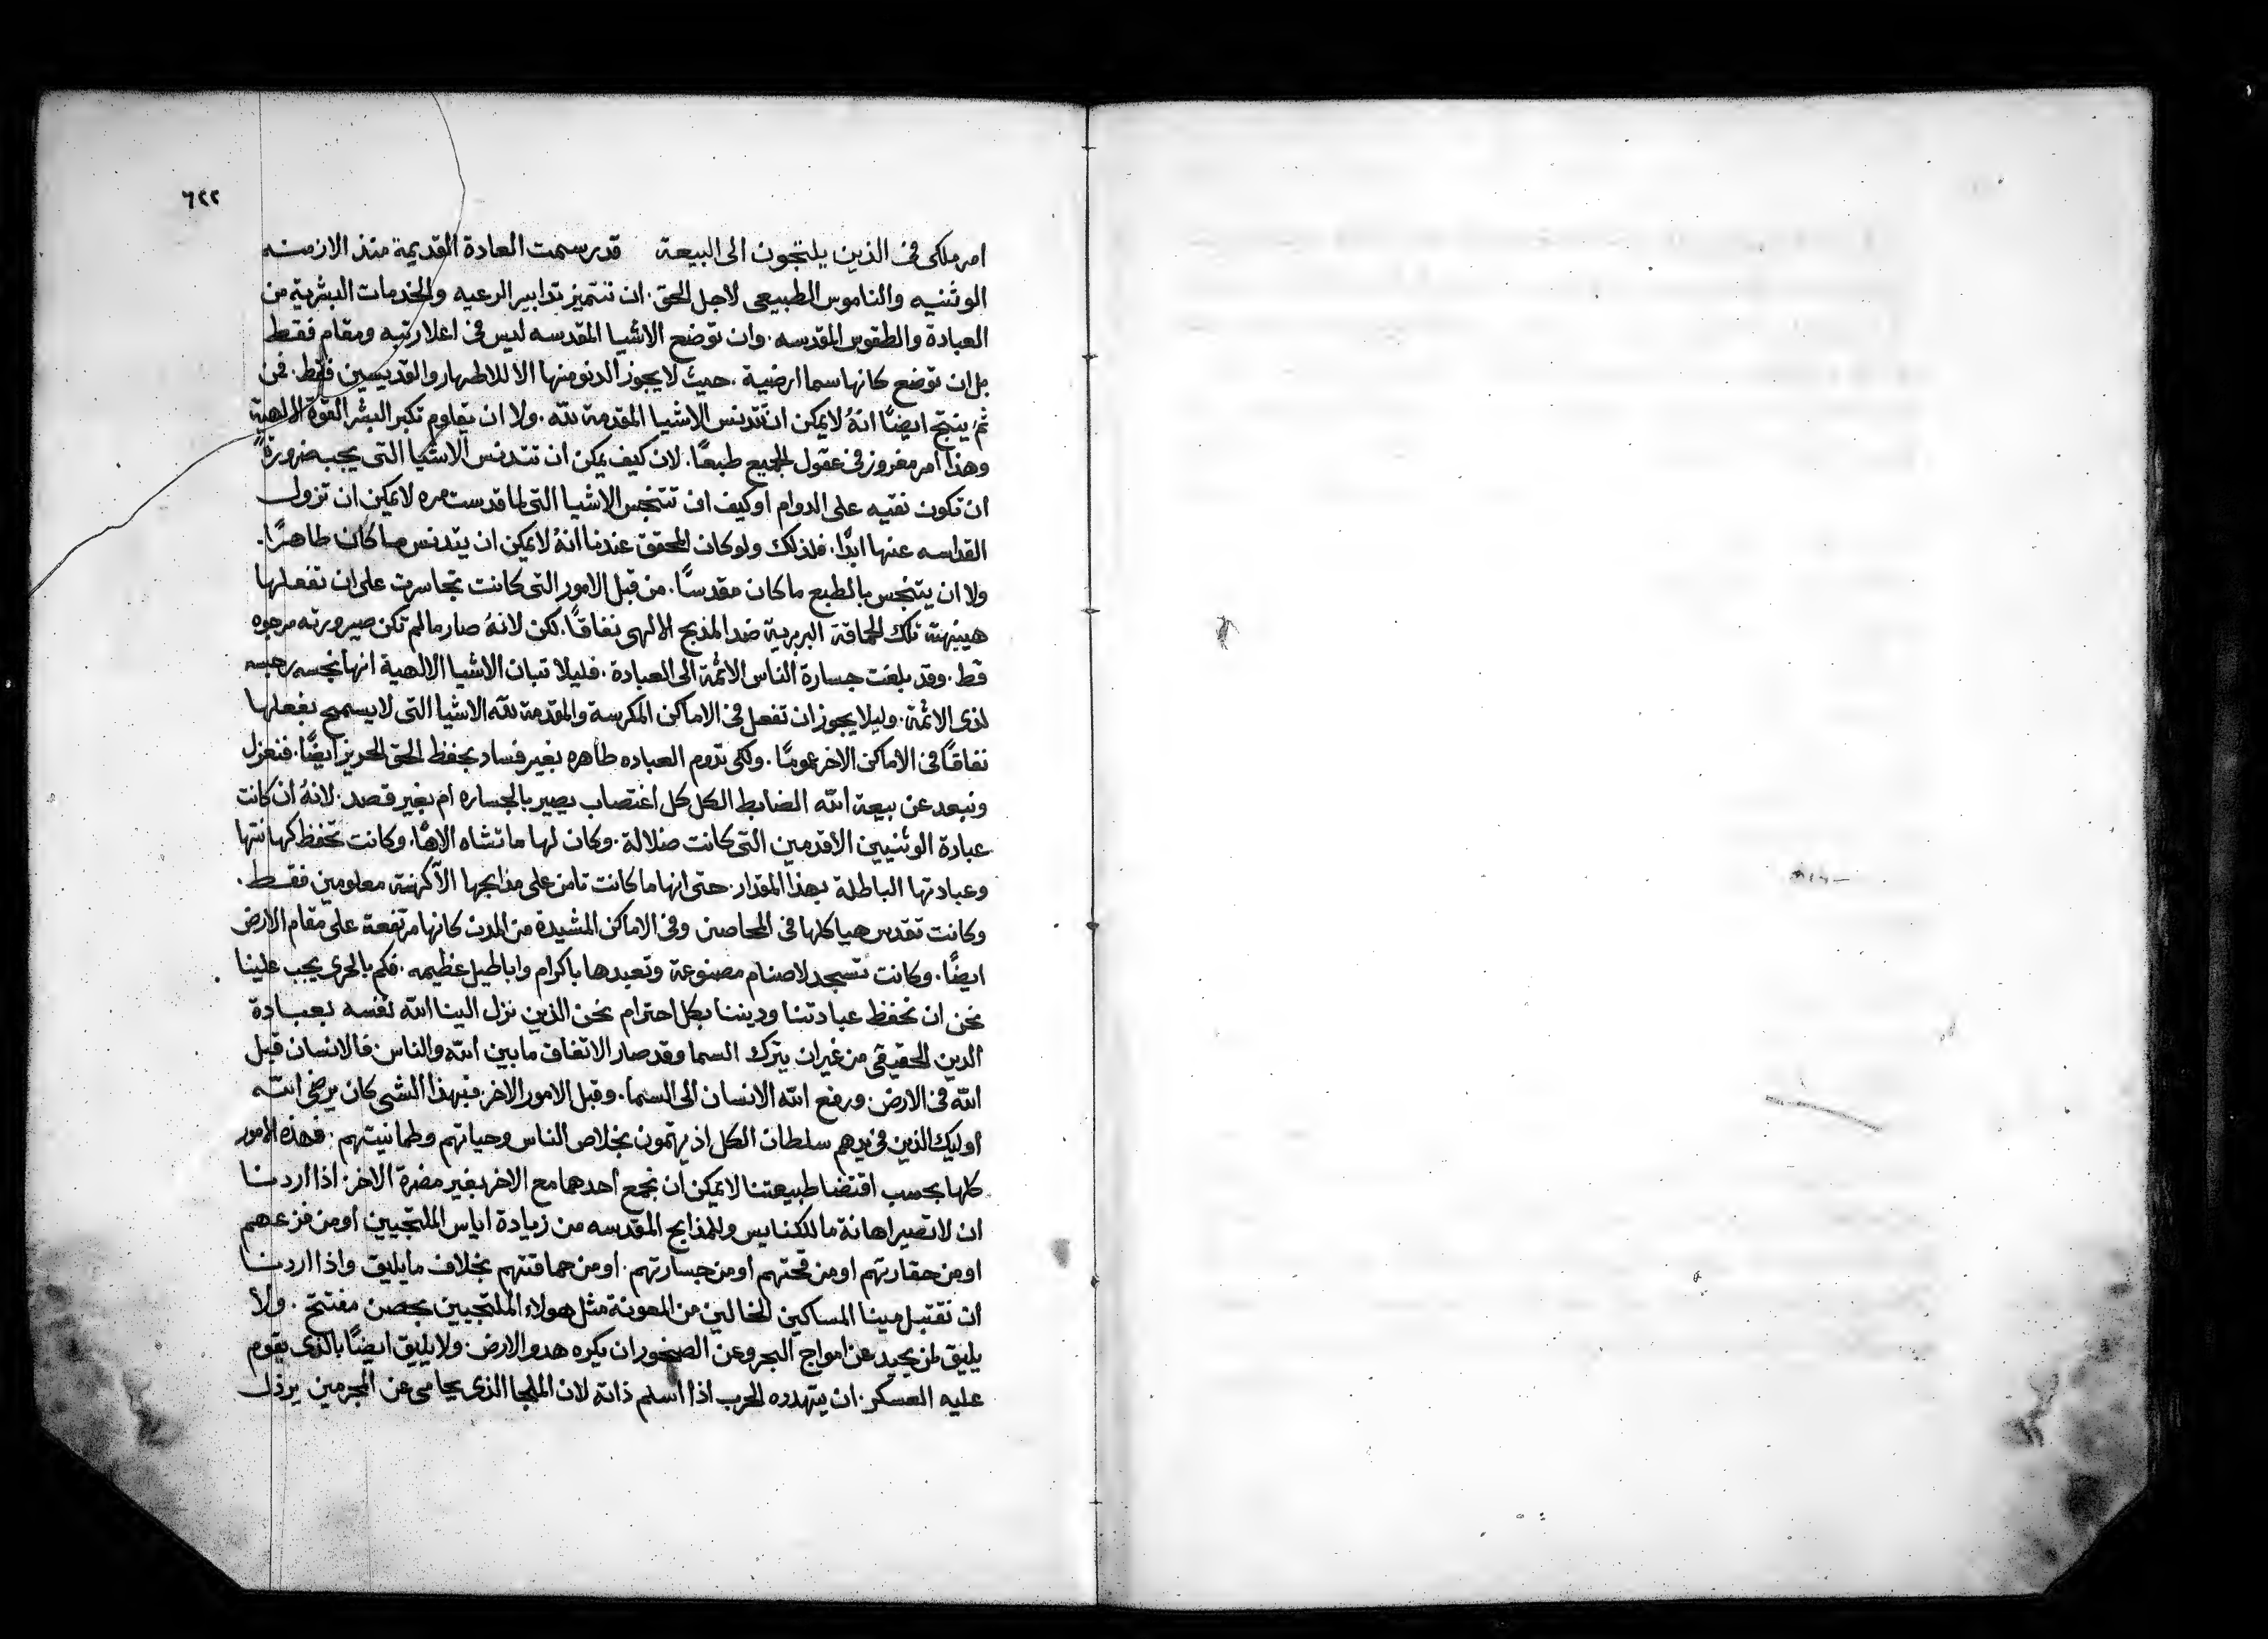 ٦٢٢
امر ملكى فى الذين يلتجون الى البيعة قد رسمت العادة القديمة منذ الازمنه
الوثنيه والناموس الطبيعى لاجل الحق. ان تتميز تدابير الرعيه والخدمات البشرية من
العبادة والطقوس المقدسه. وان توضع الاشيا المقدسه ليس فى اعلا رتبه ومقام فقط
بل ان توضع كانها سما ارضية. حيث لا يجوز الدنو منها الا للاطهار والقديسين فقط. فمن
ثم ينتج ايضًا انهُ لا يمكن ان تتدنس الاشيا المقدمة لله. ولا ان يقاوم تكبر البشر القوة الالهية
وهذا امر مغروز فى عقول الجميع طبعًا. لان كيف يمكن ان تتدنس الاشيا التى يجب ضرورةً
ان تكون نقيه على الدوام او كيف ان تتنجس الاشيا التى لما قدست مره لا يمكن ان تزول
القداسه عنها ابدًا. فلذلك ولو كان المحقق عندنا انهُ لا يمكن ان يتدنس ما كان طاهرًا.
ولا ان يتنجس بالطبع ما كان مقدسًا. من قبل الامور التى كانت تجاسرت على ان تفعلها
تلك الحماقة البربرية ضد المذبح الالهى نفاقًا. لكن لانهُ صار ما لم تكن صيرورته مرجوه
قط. وقد بلغت جسارة الناس الائمة الى العبادة. فليلا تبان الاشيا الالهية انها نجسه رجسه
لذى الائمة. وليلا يجوز ان تفعل فى الاماكن المكرسة والمقدمة لله الاشيا التى لا يسمح بفعلها
نفاقًا فى الاماكن الاخر عمومًا. ولكى تدوم العباده طاهره بغير فساد بحفظ الحق الحريز ايضًا. فنعزل
ونبعد عن بيعة الله الضابط الكل كل اغتصاب يصير بالجساره ام بغير قصد. لانهُ ان كانت
عبادة الوثنيين الاقدمين التى كانت ضلالة. وكان لها ما تشاه الاهًا. وكانت تحفظ كهانتها
وعبادتها الباطلة بهذا المقدار. حتى انها ما كانت تامن على مذابحها الا كهنة معلومين فقط.
وكانت تقدس هياكلها فى المحاصن وفى الاماكن المشيدة من المدن كانها مرتفعة على مقام الارض
ايضًا. وكانت تسجد لاصنام مصنوعة وتعبدها باكرام واباطيل عظيمه. فكم بالحرى يجب علينا
نحن ان نحفظ عبادتنا وديننا بكل احترام نحن الذين نزل الينا الله نفسه بعبادة
الدين الحقيقى من غير ان يترك السما وقد صار الاتفاق ما بين الله والناس. فالانسان قبل
الله فى الارض. ورفع الله الانسان الى السما. وقبل الامور الاخر. فبهذا الشى كان يرضى الله
اوليك الذين فى يدهم سلطان الكل اذ يهتمون بخلاص الناس وحياتهم وطمانيتهم. فهذه الامور
كلها بحسب اقتضا طبيعتنا لا يمكن ان نجمع احدهما مع الاخر بغير مضرة الاخر. اذا اردنا
ان لا تصير اهانة ما للكنايس وللمذابح المقدسه من زيادة اياس الملتجيين او من فزعهم
او من حقارتهم او من قحتهم او من جسارتهم. او من حماقتهم بخلاف ما يليق واذا اردنا
ان نقتبل مينا المساكين الخالين من المعونة مثل هولاء الملتجيين بحصن مفتتح. ولا
يليق لمن يحيد عن امواج البحر وعن الصخور ان يكره هدو الارض. ولا يليق ايضًا بالذى يقوم
عليه العسكر. ان يتهدده الحرب اذا اسلم ذاته لان الملجا الذى يحامى عن المجرمين يرذل